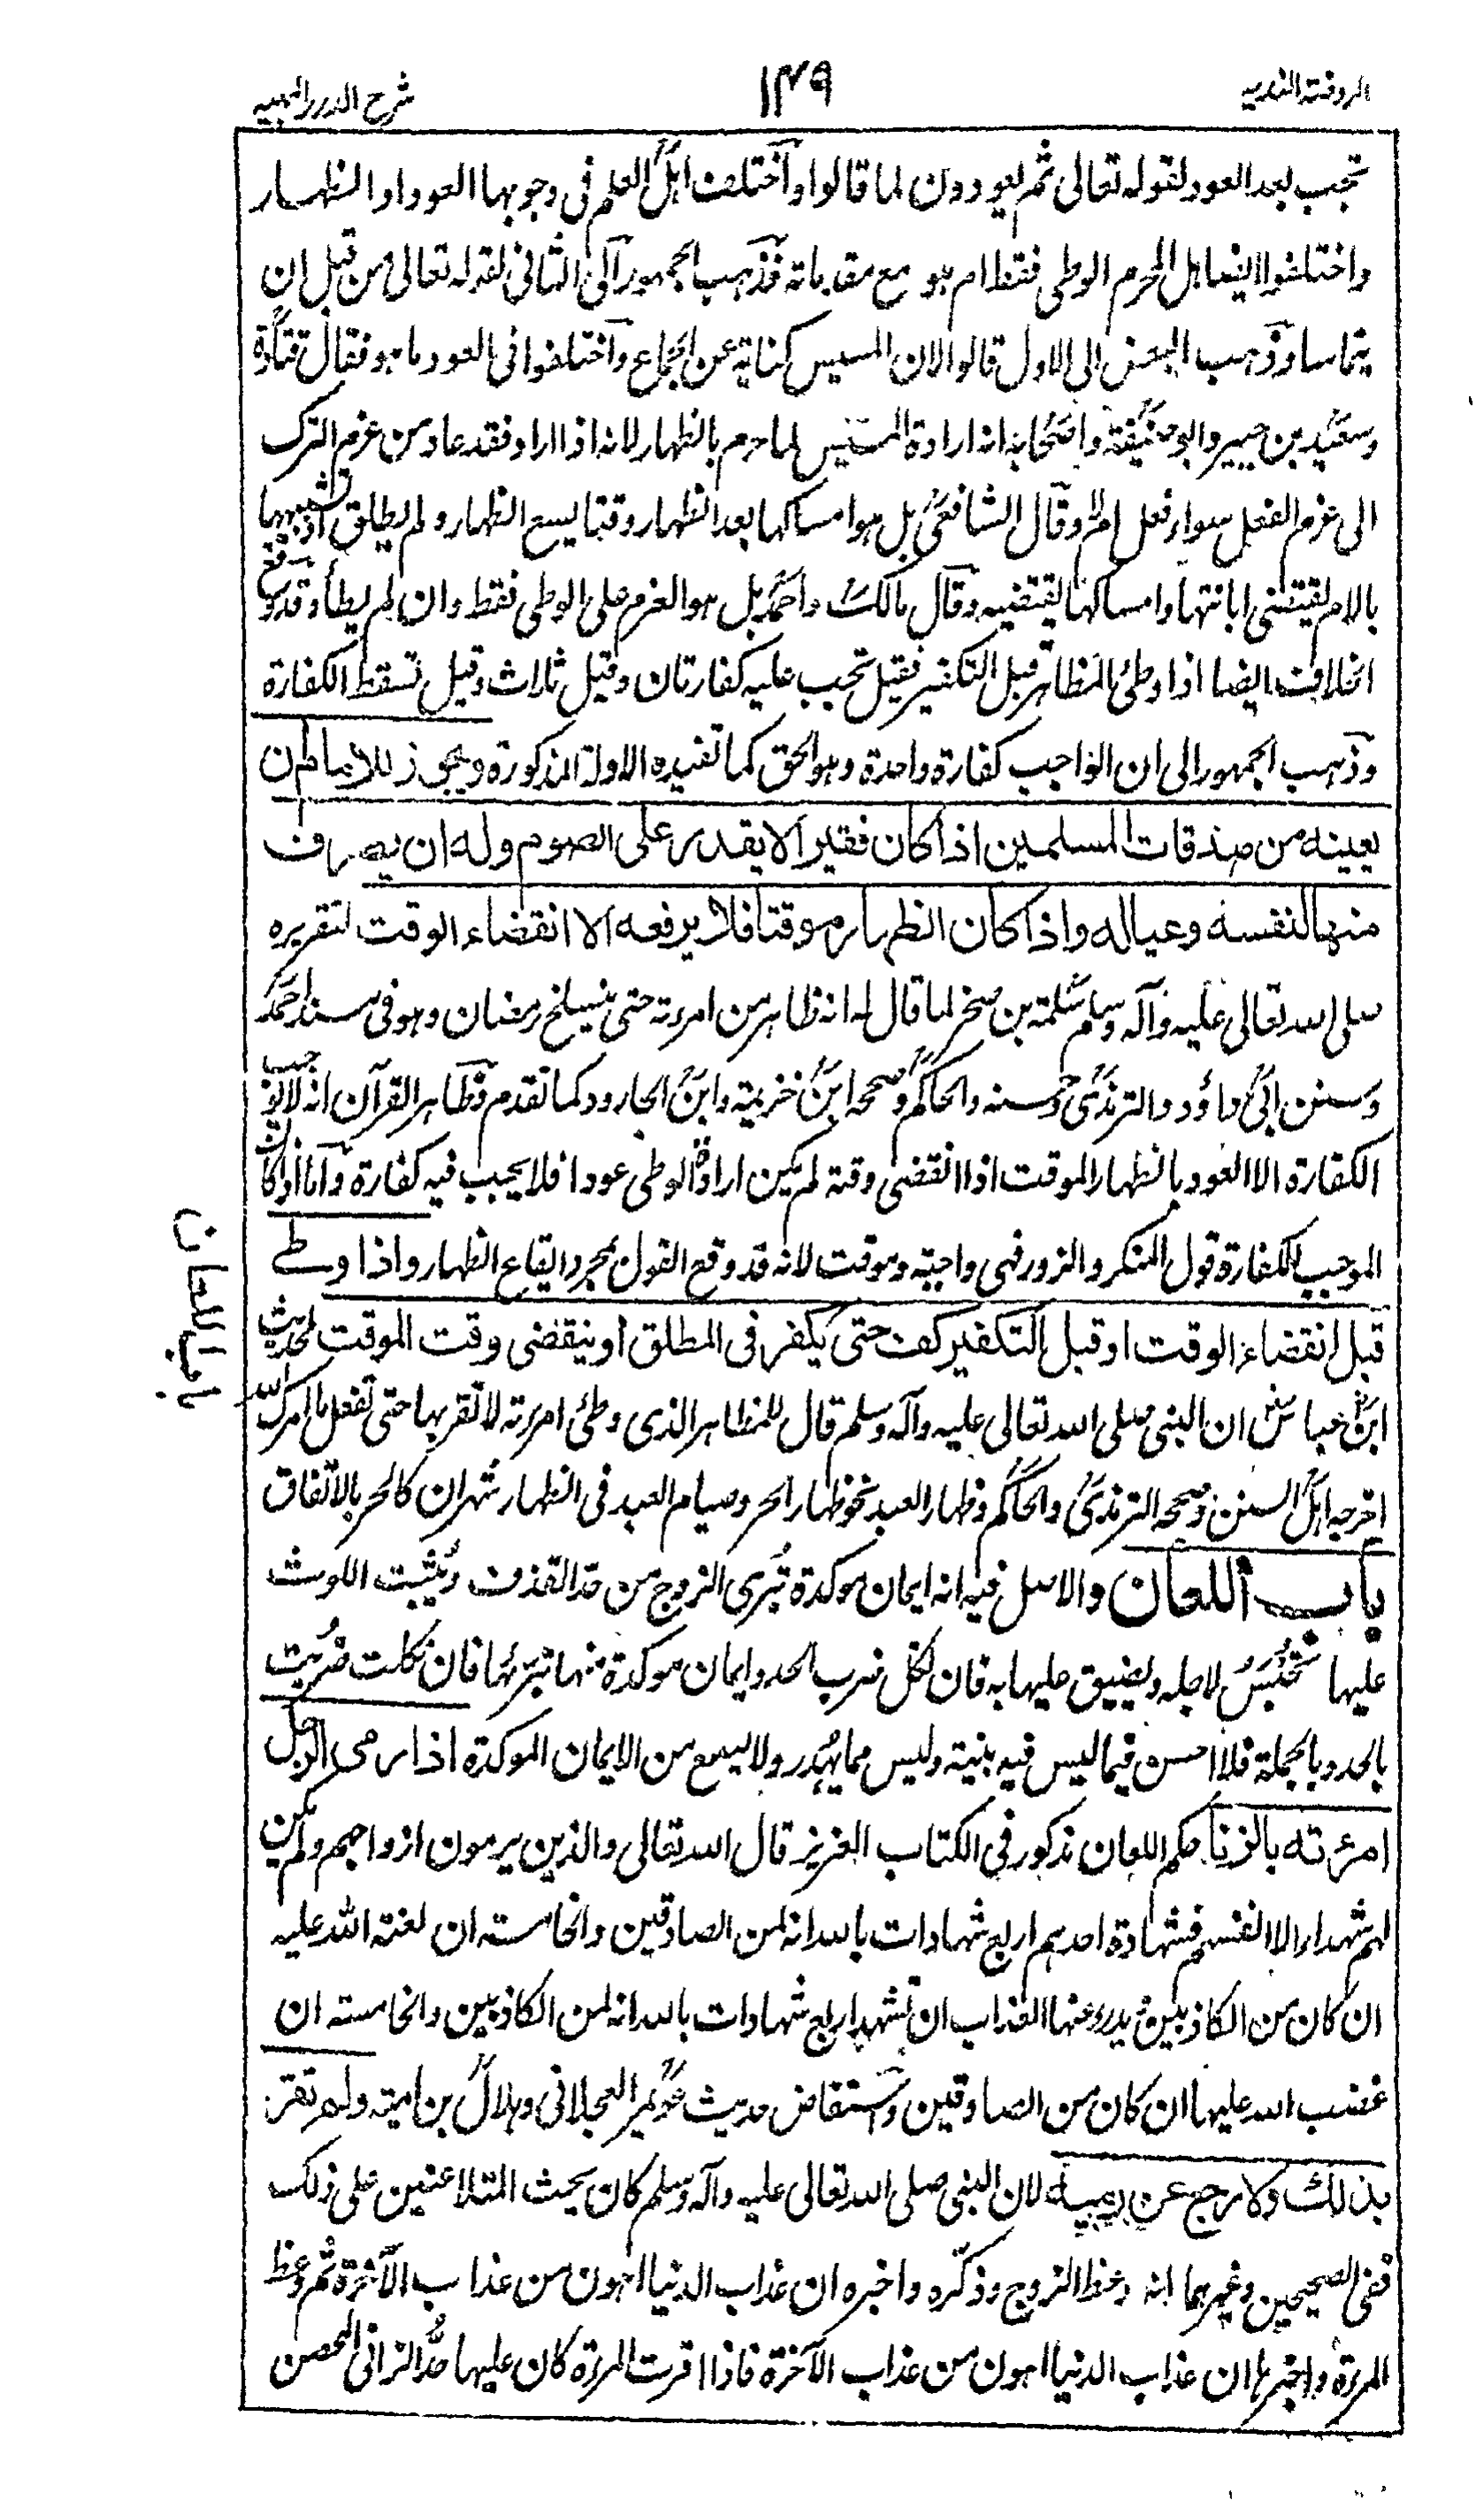 الروضة الندية
١٤٩
شرح الدرر البهية
تجب بعد العود لقوله تعالى ثم يعودون لما قالوا واختلف اهل العلم فى وجوبها العود او الظهار
واختلفوا ايضا هل المحرم الوطى فقط ام هو مع مقدماته فذهب الجمهور الى الثانى لقوله تعالى من قبل ان
يتماسا وذهب البعض الى الاول قالوا لان المسيس كناية عن الجماع واختلفوا فى العود ما هو فقال قتادة
وسعيد بن جبير وابو حنيفة واصحابه انه ارادة المسيس لما حرم بالظهار لانه اذا اراد فقد عاد من عزم الترك
الى عزم الفعل سواء فعل ام لا وقال الشافعى بل هو امساكها بعد الظهار وقتا يسع الظهار ولم يطلق اذ تشبيهها
بالام يقتضى ابانتها وامساكها يقتضيه وقال مالك واحمد بل هو العزم على الوطى فقط وان لم يطأ وقد وقع
الخلاف ايضا اذا وطئ المظاهر قبل التكفير فقيل تجب عليه كفارتان وقيل ثلاث وقيل تسقط الكفارة
وذهب الجمهور الى ان الواجب كفارة واحدة وهو الحق كما تفيده الادلة المذكورة ويجوز للامام ان
يعينه من صدقات المسلمين اذا كان فقيرا لا يقدر على الصوم وله ان يصرف
منها لنفسه وعياله واذا كان الظهار موقتا فلا يرفعه الا انقضاء الوقت لتقريره
صلى الله تعالى عليه وآله وسلم سلمة بن صخر لما قال له انه ظاهر من امرءته حتى ينسلخ رمضان وهو فى مسند احمد
وسنن ابى داؤد والترمذى وحسنه والحاكم وصححه ابن خزيمة وابن الجارود كما تقدم فظاهر القرآن انه لا يوجب
الكفارة الا العود بالظهار الموقت اذا انقضى وقته لم يكن ارادة الوطى عودا فلا يجب فيه كفارة واما اذا كان
الموجب للكفارة قول المنكر والزور فهى واجبة وموقت لانه قد وقع القول بمجرد ايقاع الظهار واذا وطے
قبل انقضاء الوقت او قبل التكفير كف حتى يكفر فى المطلق او ينقضى وقت الموقت لحديث
ابن عباس ان النبى صلى الله تعالى عليه وآله وسلم قال للمظاهر الذى وطئ امرءته لا تقربها حتى تفعل ما امرك الله
اخرجه اهل السنن وصححه الترمذى والحاكم وظهار العبد نحو ظهار الحر وصيام العبد فى الظهار شهران كالحر بالاتفاق
باب اللعان
باب اللعان والاصل فيه انه ايمان موكدة تبرى الزوج من حد القذف ويثبت اللوث
عليها تحبس لاجله ويضيق عليها به فان نكل ضرب الحد وايمان موكدة منها تبرئها فان نكلت ضربت
بالحد وبالجملة فلا احسن فيما ليس فيه بنية وليس مما يهدر ولا يسمع من الايمان الموكدة اذا رمى الرجل
امرءته بالزنا حكم اللعان مذكور فى الكتاب العزيز قال الله تعالى والذين يرمون ازواجهم ولم يكن
لهم شهداء الا انفسهم فشهادة احدهم اربع شهادات بالله انه لمن الصادقين والخامسة ان لعنة الله عليه
ان كان من الكاذبين ويدرء عنها العذاب ان تشهد اربع شهادات بالله انه لمن الكاذبين والخامسة ان
غضب الله عليها ان كان من الصادقين واستفاض حديث عويمر العجلانى وهلال بن امية ولم تقر
بذلك ولا رجع عن رميه لان النبى صلى الله تعالى عليه وآله وسلم كان يحث المتلاعنين على ذلك
ففى الصحيحين وغيرهما انه وعظ الزوج وذكره واخبره ان عذاب الدنيا اهون من عذاب الآخرة ثم وعظ
المرءة واخبرها ان عذاب الدنيا اهون من عذاب الآخرة فاذا اقرت المرءة كان عليها حد الزانى المحصن